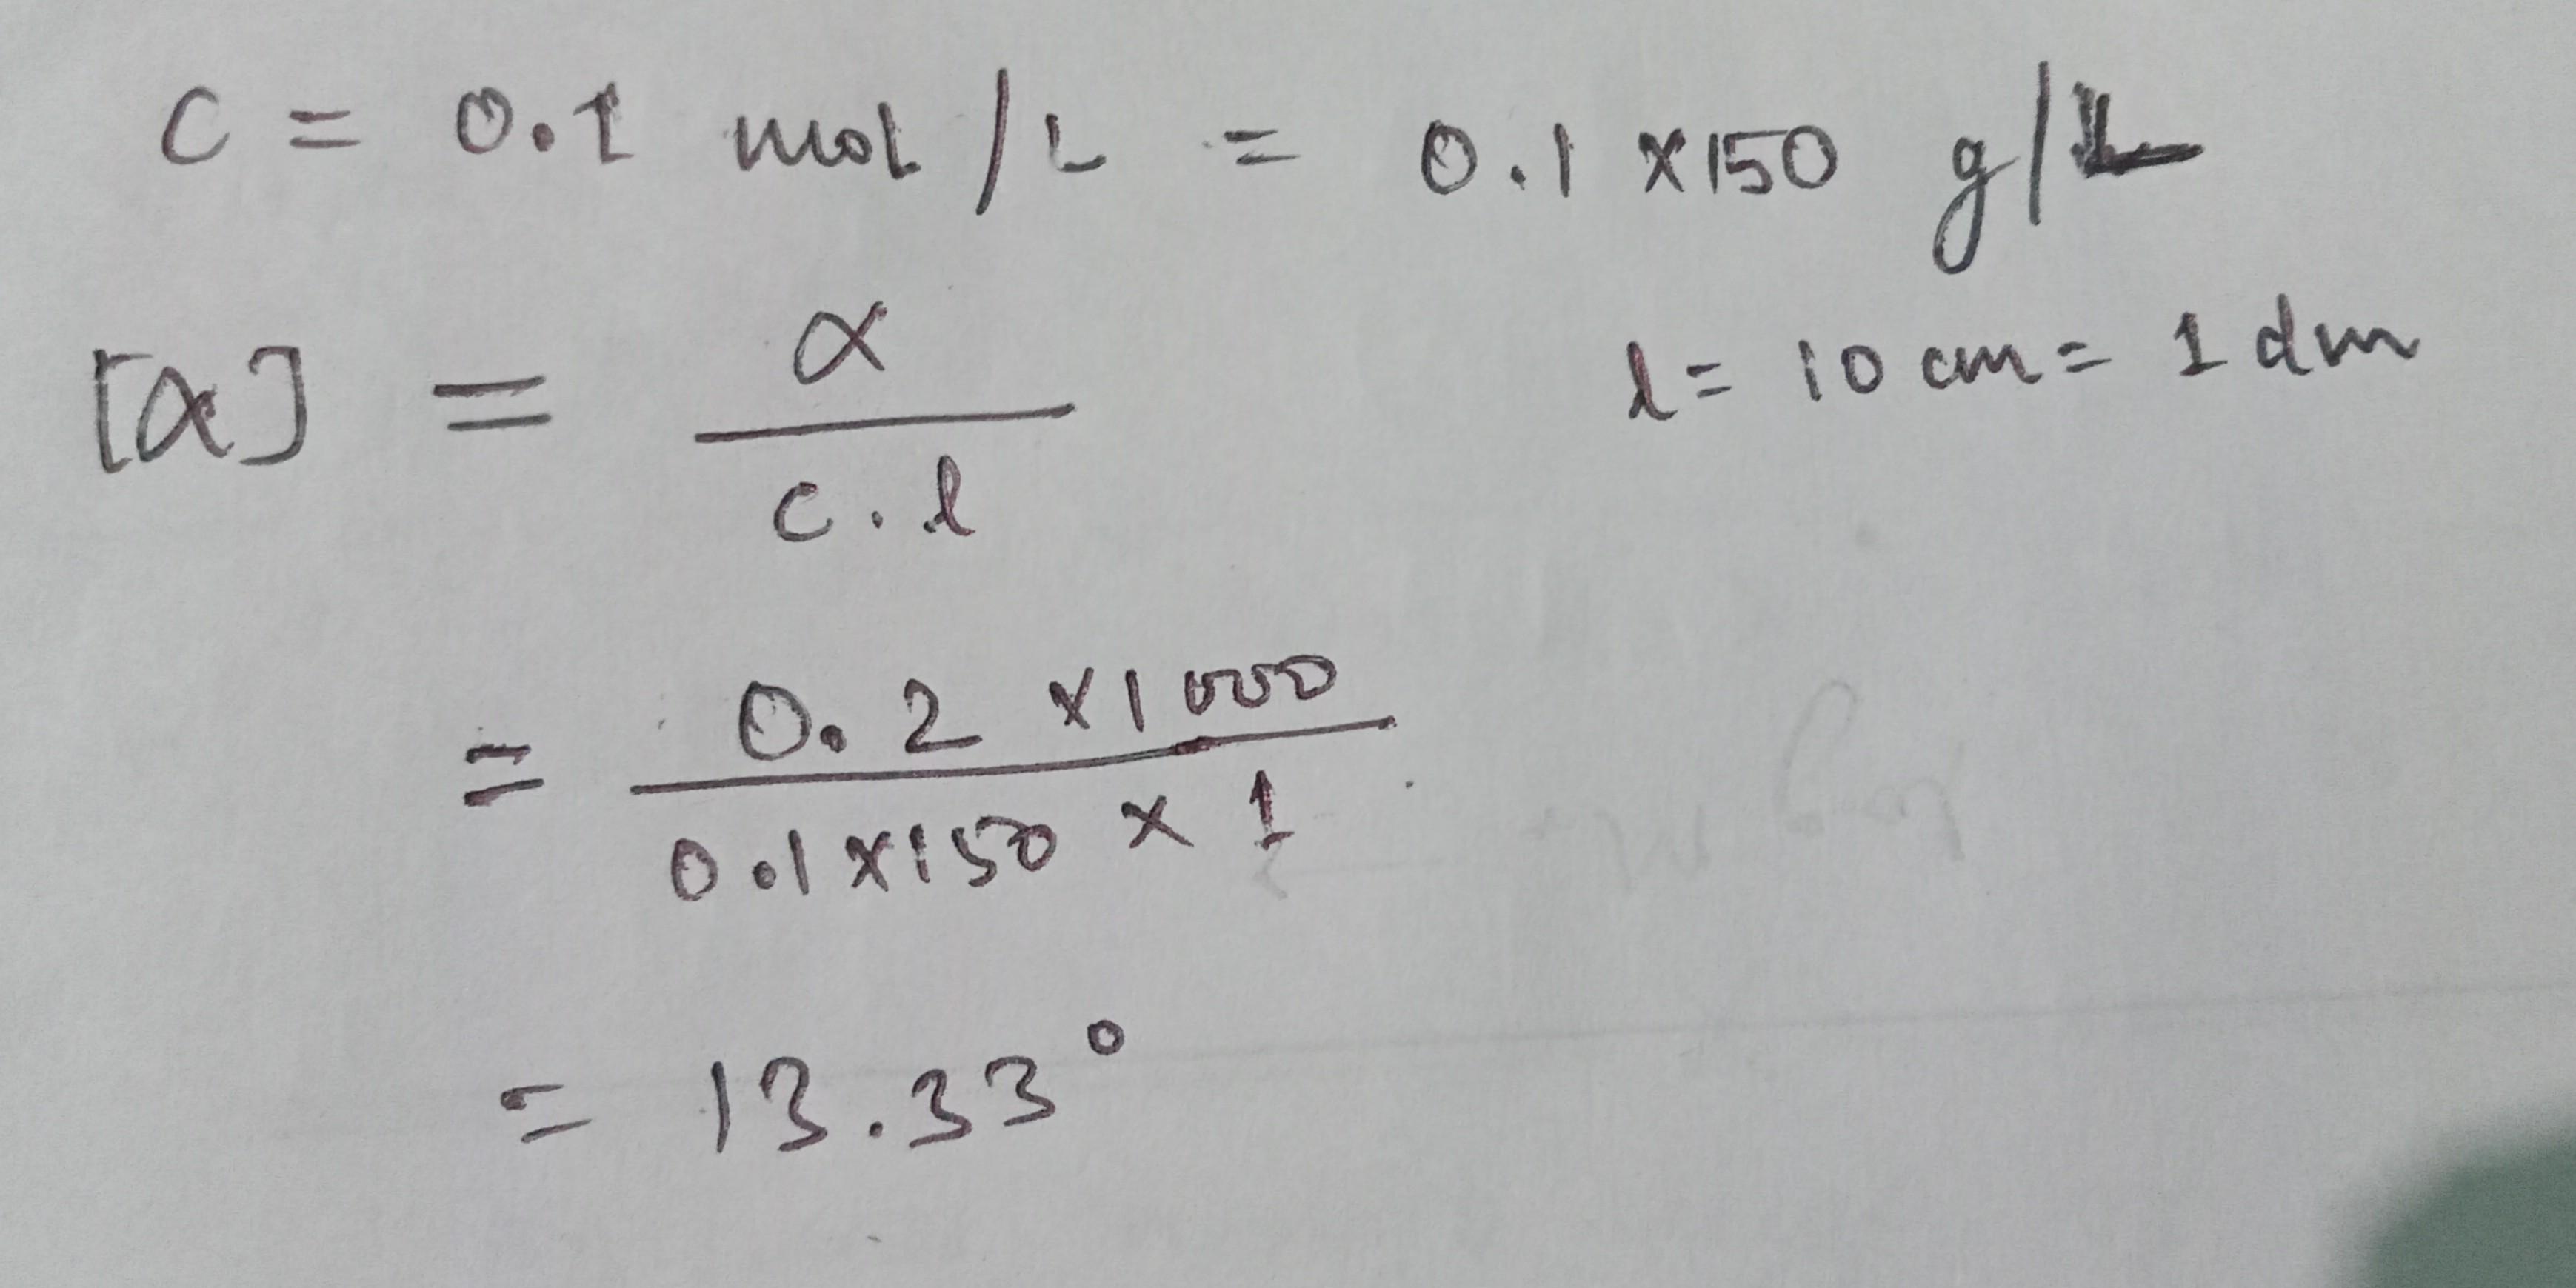 c = 0.1 mol/L = 0.1 x 150 g/L
[α] = α / c.l
l = 10 cm = 1 dm
= 0.2 x 1000 / 0.1 x 150 x 1
= 13.33°